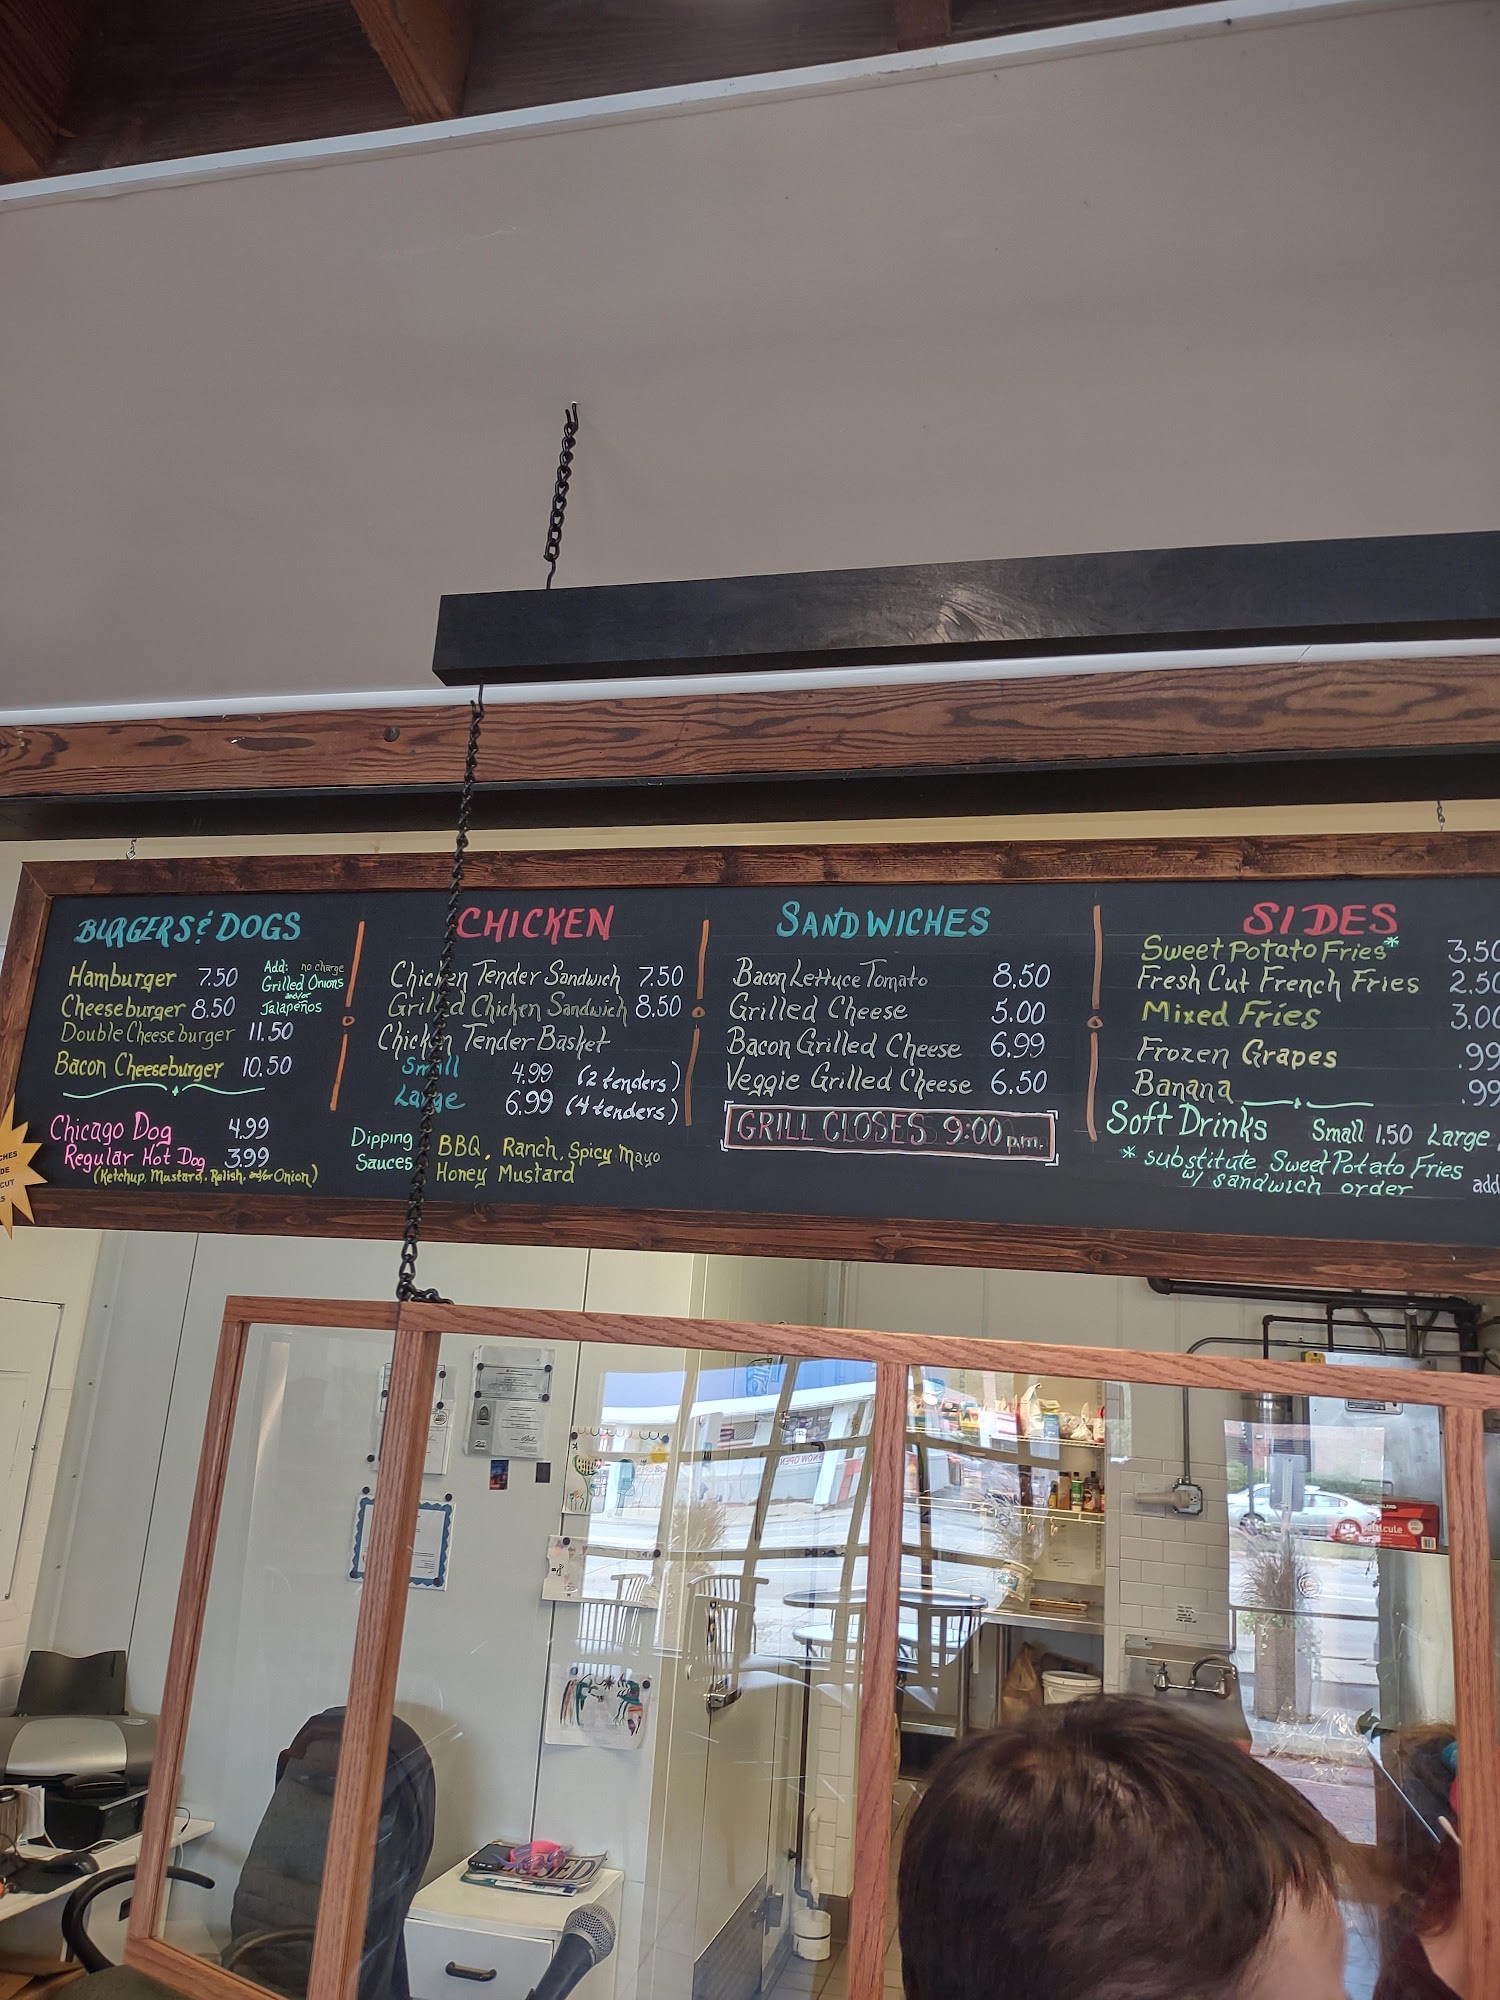 BURGERS & DOGS
Hamburger 7.50
Cheeseburger 8.50
Double Cheeseburger 11.50
Bacon Cheeseburger 10.50
Add: no charge
Grilled Onions
and/or
Jalapeños
Chicago Dog 4.99
Regular Hot Dog 3.99
(Ketchup, Mustard, Relish, and/or Onion)
CHICKEN
Chicken Tender Sandwich 7.50
Grilled Chicken Sandwich 8.50
Chicken Tender Basket
Small 4.99 (2 tenders)
Large 6.99 (4 tenders)
Dipping Sauces
BBQ, Ranch, Spicy Mayo
Honey Mustard
SANDWICHES
Bacon Lettuce Tomato 8.50
Grilled Cheese 5.00
Bacon Grilled Cheese 6.99
Veggie Grilled Cheese 6.50
GRILL CLOSES 9:00 p.m.
SIDES
Sweet Potato Fries* 3.50
Fresh Cut French Fries 2.50
Mixed Fries 3.00
Frozen Grapes .99
Banana .99
Soft Drinks Small 1.50 Large
* substitute Sweet Potato Fries
w/ sandwich order add
NOW OPEN